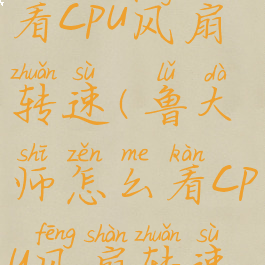 看CPU风扇
zhuǎn sù lǔ dà
转速(鲁大
shī zěn me kàn
师怎么看CP
fēng shàn zhuǎn sù
U风扇转速